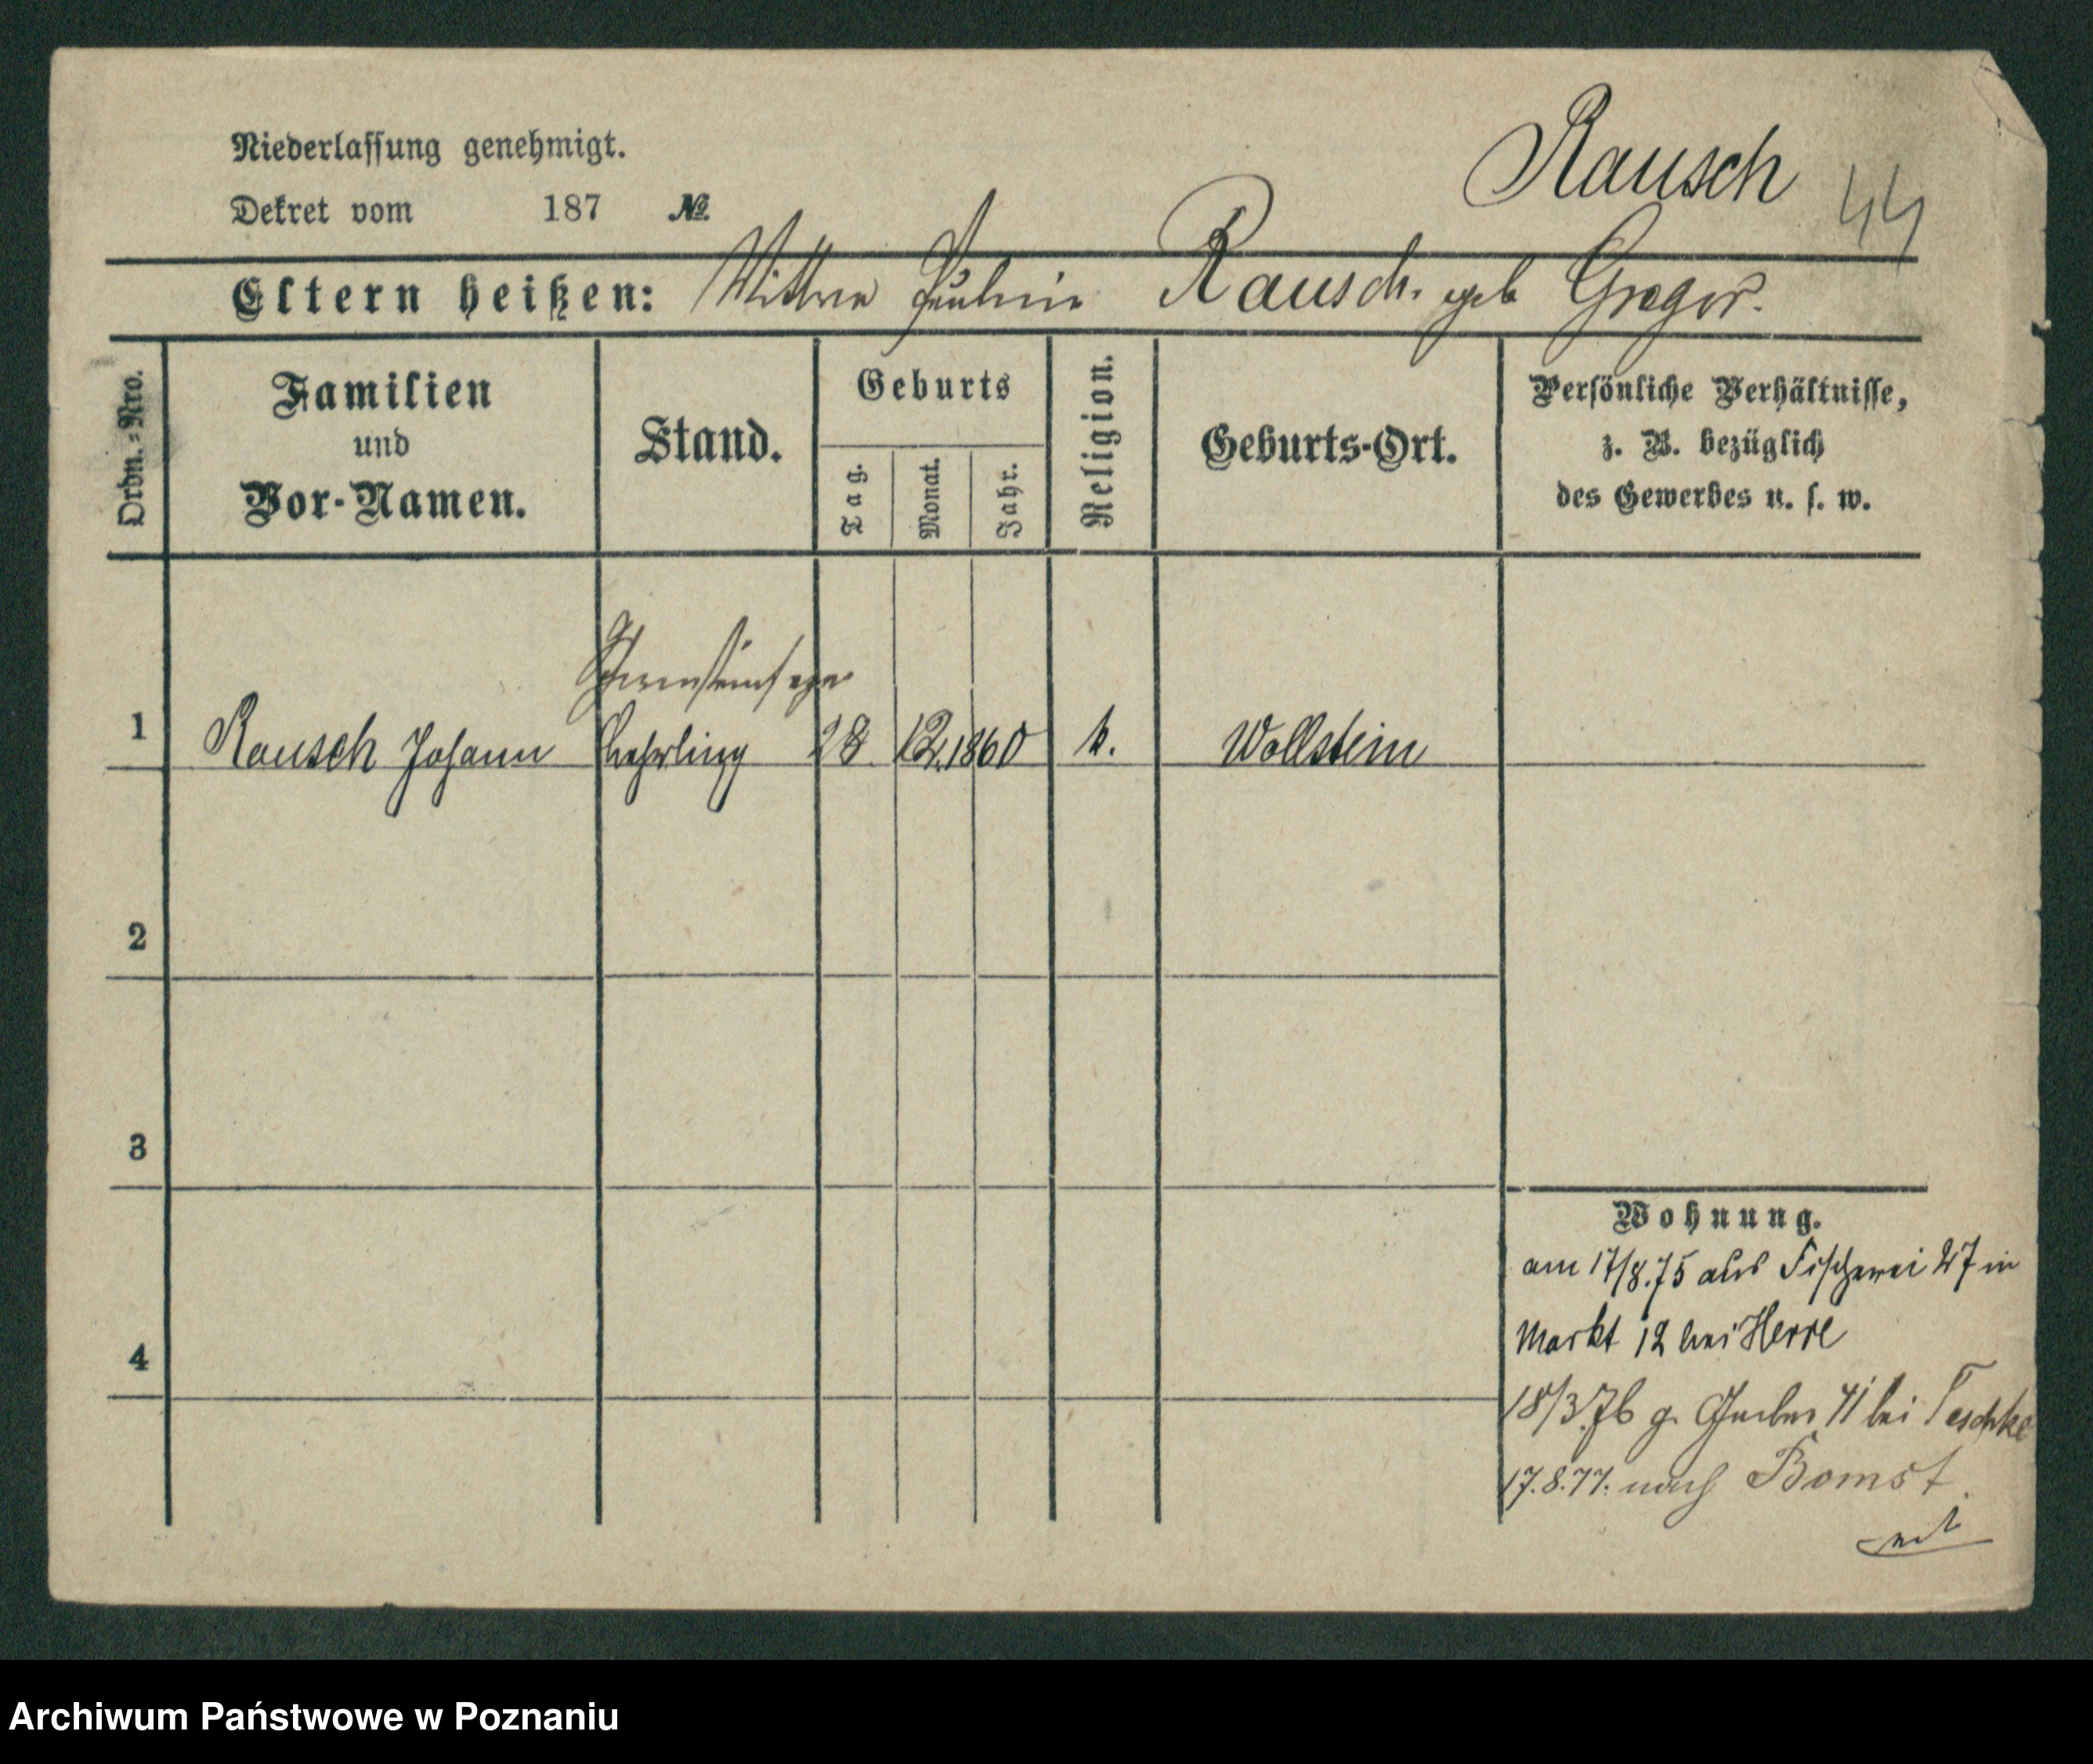 Rausch
44
Niederlassung genehmigt.
Dekret vom 187 №
Eltern heißen: Wittwe Pauline Rausch. geb Gregor.
Ordn.-Nro.
Familien und Vor-Namen.
Stand.
Geburts
Tag.
Monat.
Jahr.
Religion.
Geburts-Ort.
Persönliche Verhältnisse,
z. B. bezüglich
des Gewerbes u. s. w.
Schornsteinfeger
1 Rausch Johann Lehrling 28 12. 1860 k. Wollstein
2
3
4
Wohnung.
am 17/8.75 aus Fischerei 27 in
Markt 12 bei Herre
18/3.76 gr. Gerber 41 bei Teschke
17.8.77. nach Bomst.
Archiwum Państwowe w Poznaniu